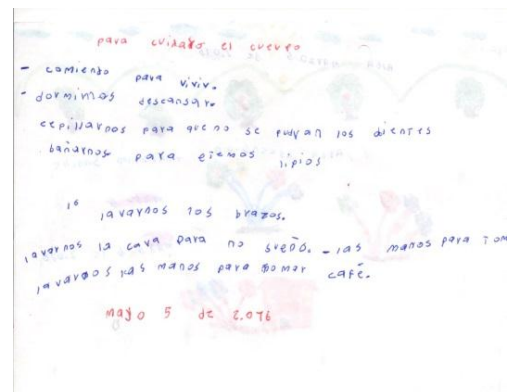 para cuidaro el cuerpo
- comiendo para vivir.
- dormimos descansar.
cepillarnos para que no se pudran los dientes
bañarnos para ejemos lipios
lavarnos los brazos.
lavarnos la cara para no sueño. - las manos para tom
lavarnos las manos para tomar café.
mayo 5 de 2.016